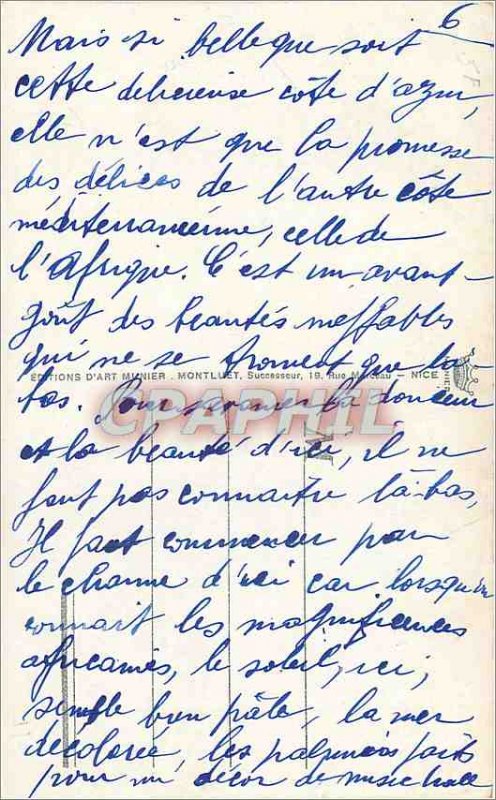 6
Mais si belle que soit
cette delicieuse côte d'azur,
elle n'est que la promesse
des délices de l'autre côte
méditerranéenne, celle de
l'Afrique. C'est un avant-
goût des beautés ineffables
qui ne se trouvent que là
EDITIONS D'ART MUNIER . MONTLUET, Successeur, 19, Rue Marceau - NICE
bas. Pour savourer la douceur
CPAPHIL
et la beauté d'ici, il ne
faut pas connaître là-bas,
Il faut commencer par
le charme d'ici car lorsqu'on
connait les magnificences
africaines, le soleil, ici,
semble bien pâle, la mer
décolorée, les palmiers faits
pour un décor de music hall